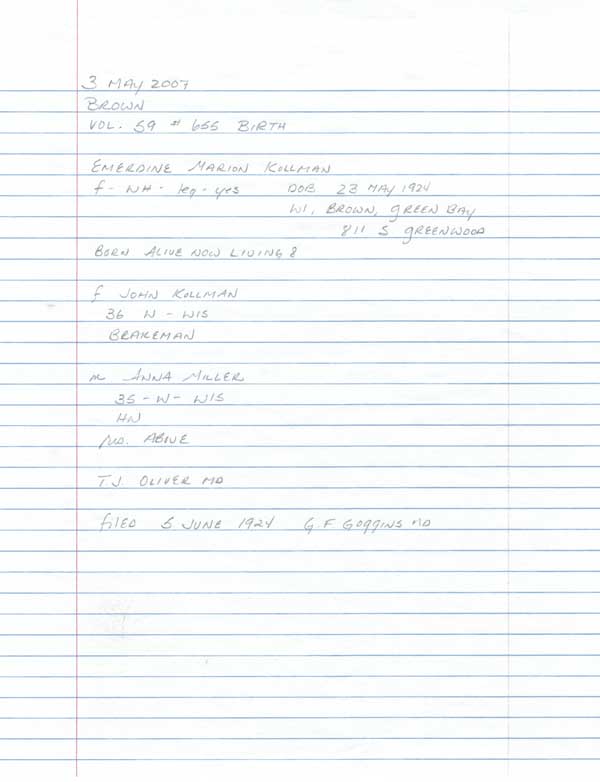 3 MAY 2007
BROWN
VOL. 59 # 655 BIRTH
EMERDINE MARION KOLLMAN
f - WH - leg - yes DOB 23 MAY 1924
WI, BROWN, GREEN BAY
811 S GREENWOOD
BORN ALIVE NOW LIVING 8
f JOHN KOLLMAN
36 W - WIS
BRAKEMAN
m ANNA MILLER
35 - W - WIS
HW
ABOVE
T.J. OLIVER MD
FILED 5 JUNE 1924 G.F GOGGINS MD